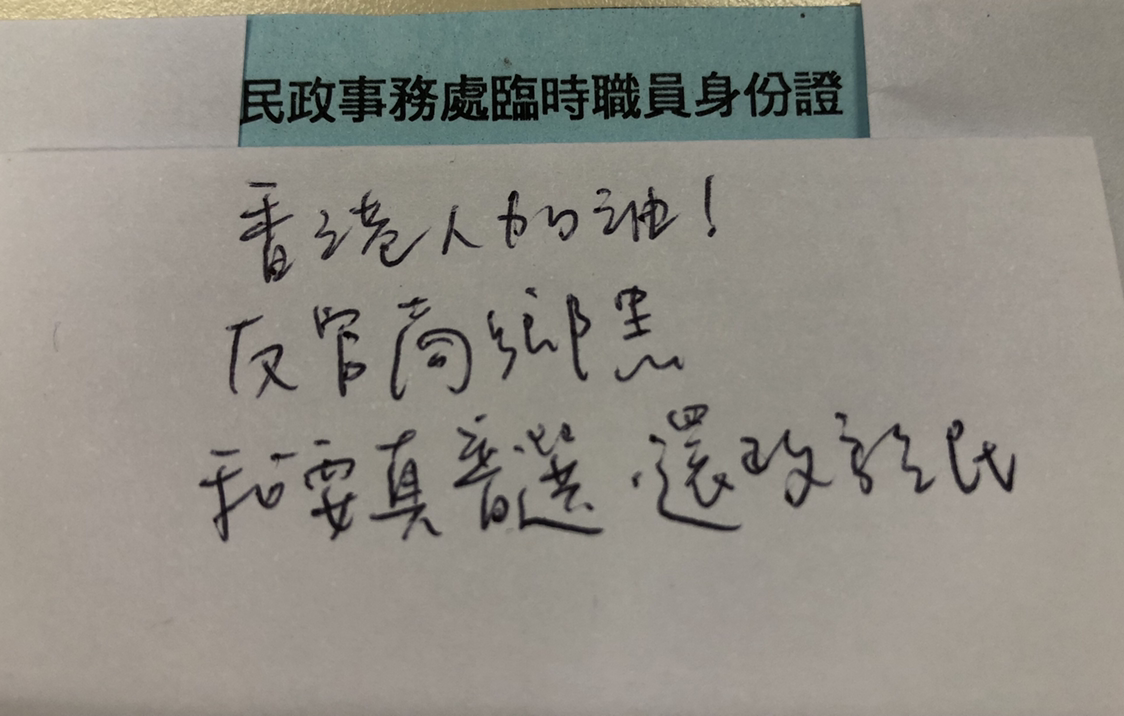 民政事務處臨時職員身份證
香港人加油！
反官商鄉黑
我要真普選 還政於民